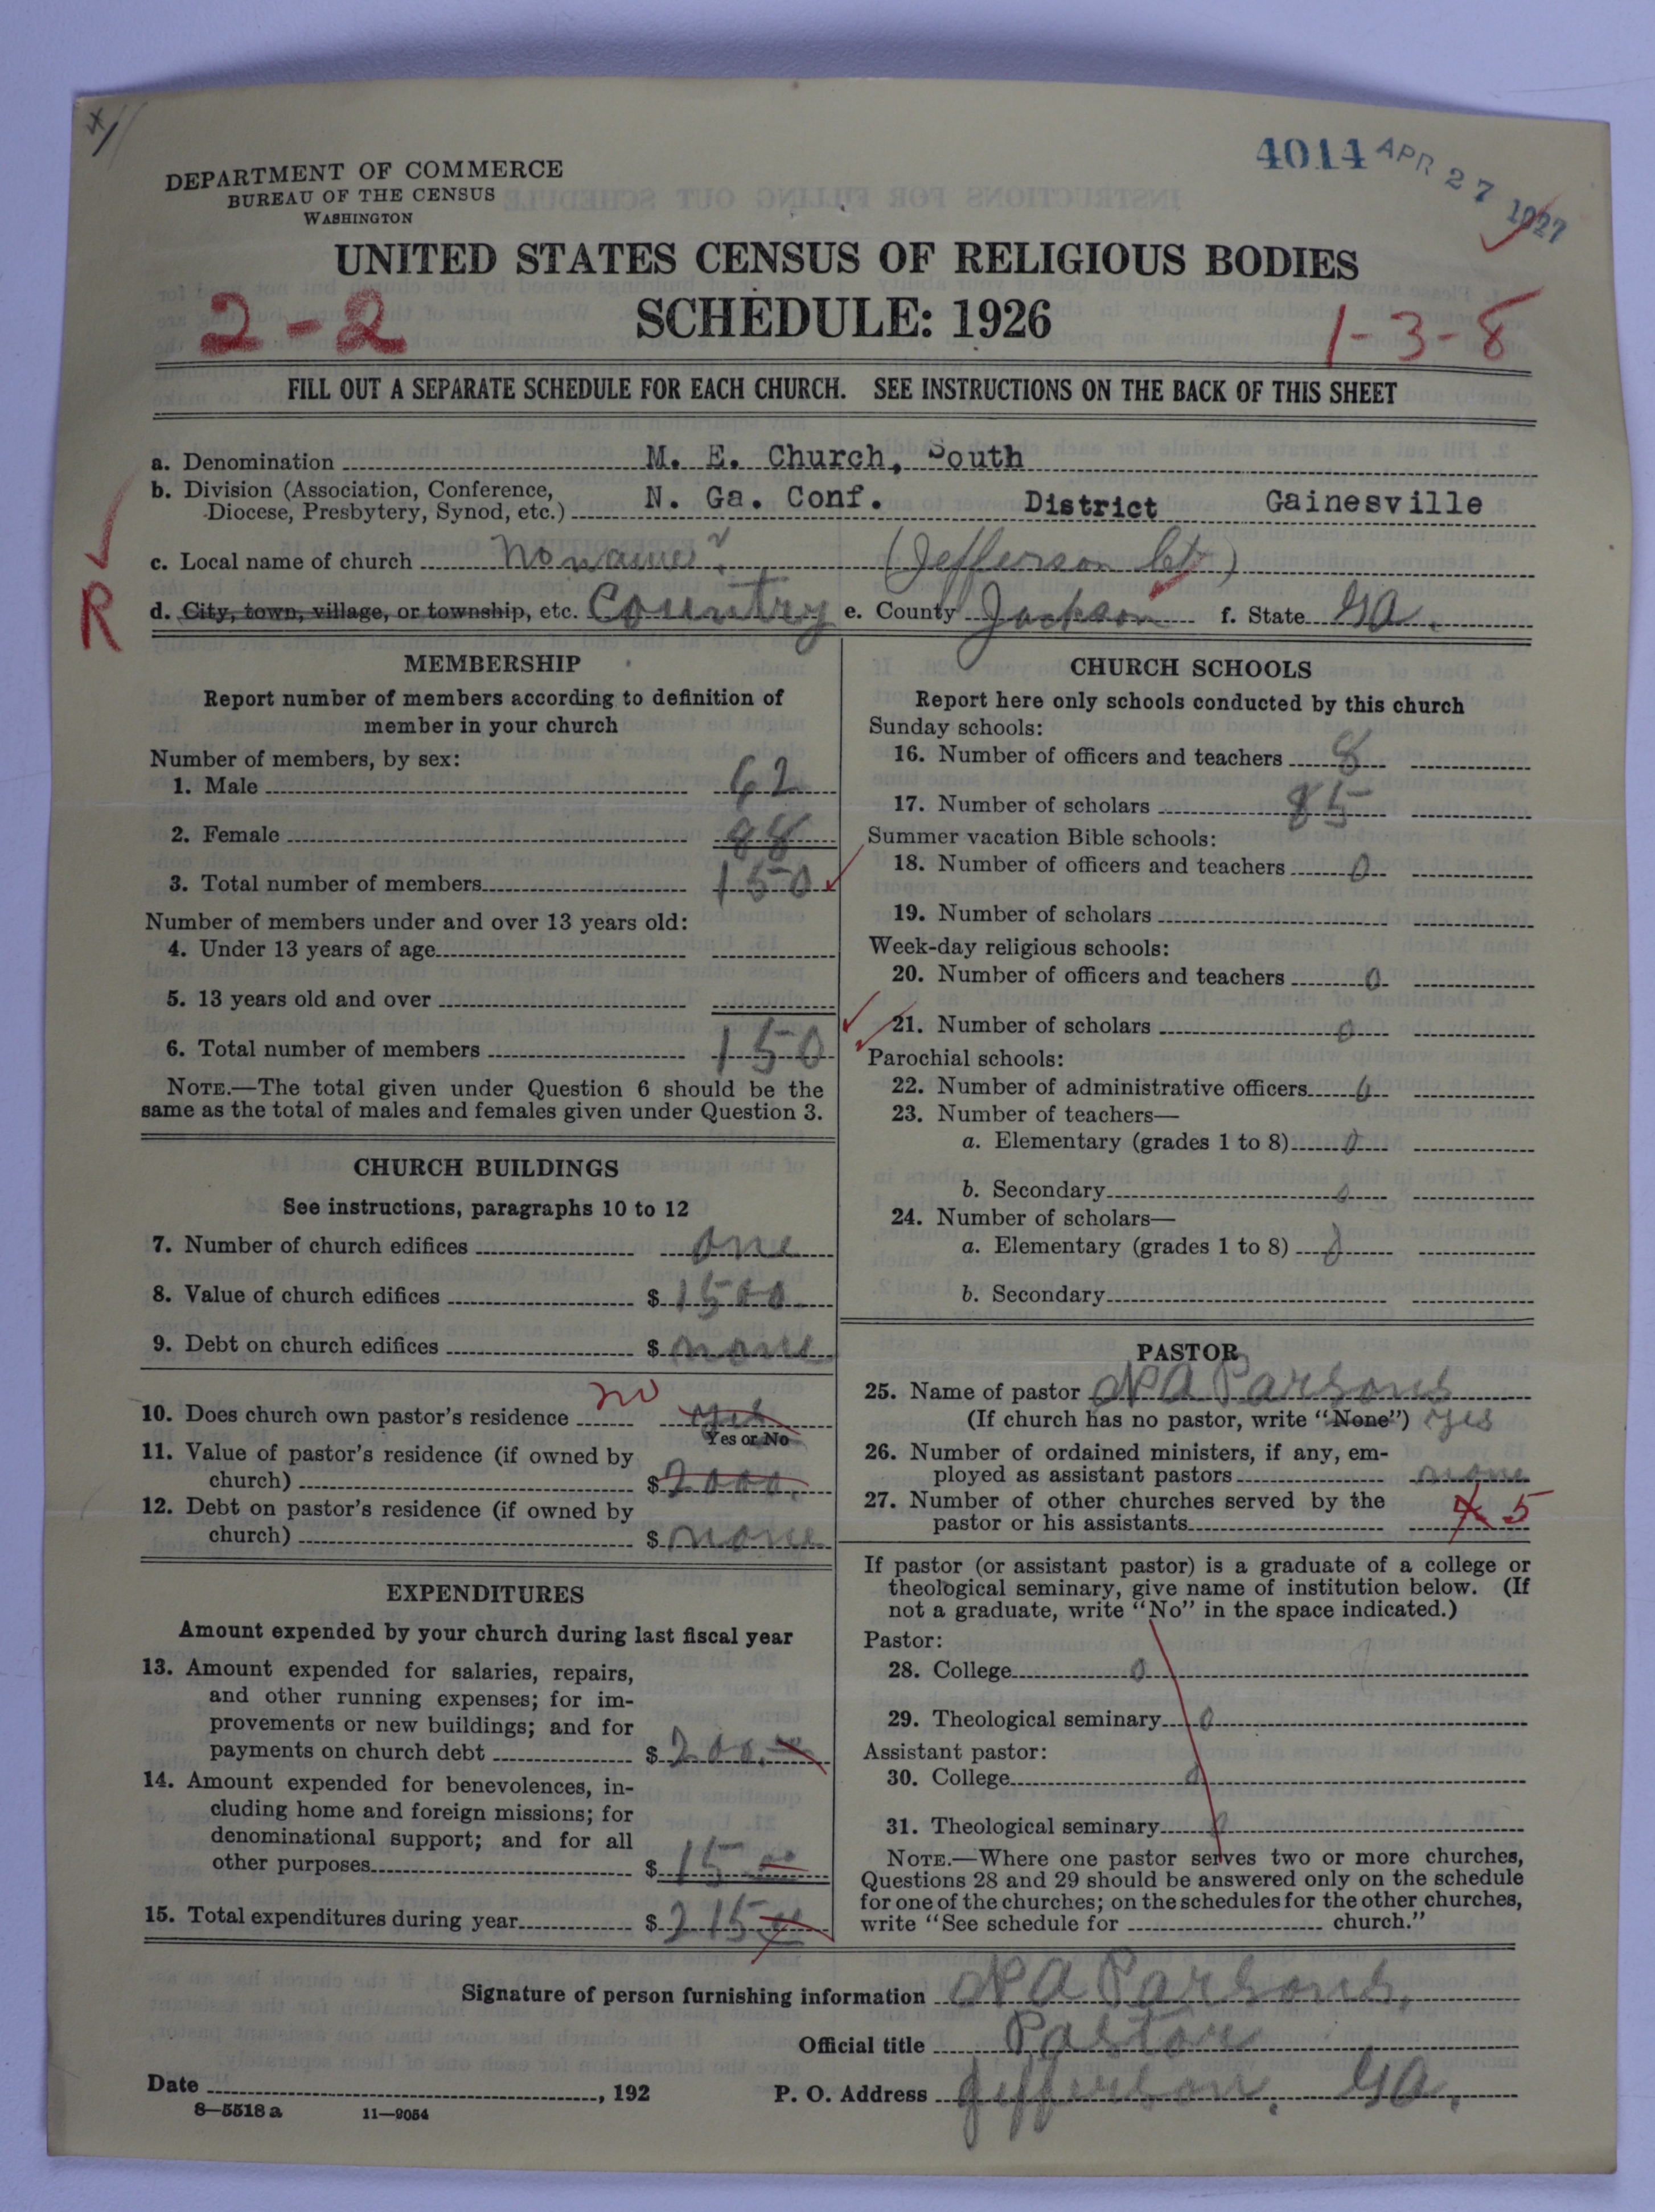 4014 APR 27 1927
DEPARTMENT OF COMMERCE
BUREAU OF THE CENSUS
WASHINGTON
UNITED STATES CENSUS OF RELIGIOUS BODIES
2-2 SCHEDULE: 1926 1-3-8
FILL OUT A SEPARATE SCHEDULE FOR EACH CHURCH. SEE INSTRUCTIONS ON THE BACK OF THIS SHEET
a. Denomination M. E. Church, South
b. Division (Association, Conference,
Diocese, Presbytery, Synod, etc.) N. Ga. Conf. District Gainesville
c. Local name of church No name? (Jefferson Ct)
R
d. City, town, village, or township, etc. Country e. County Jackson f. State Ga.
MEMBERSHIP
Report number of members according to definition of
member in your church
Number of members, by sex:
1. Male 62
2. Female 88
3. Total number of members 150
Number of members under and over 13 years old:
4. Under 13 years of age
5. 13 years old and over
6. Total number of members 150
NOTE.—The total given under Question 6 should be the
same as the total of males and females given under Question 3.
CHURCH BUILDINGS
See instructions, paragraphs 10 to 12
7. Number of church edifices one
8. Value of church edifices $ 1500.
9. Debt on church edifices $ none
10. Does church own pastor's residence no yes
Yes or No
11. Value of pastor's residence (if owned by
church) $ 2000.
12. Debt on pastor's residence (if owned by
church) $ none
EXPENDITURES
Amount expended by your church during last fiscal year
13. Amount expended for salaries, repairs,
and other running expenses; for im-
provements or new buildings; and for
payments on church debt $ 200.
14. Amount expended for benevolences, in-
cluding home and foreign missions; for
denominational support; and for all
other purposes $ 15 00
15. Total expenditures during year $ 215
CHURCH SCHOOLS
Report here only schools conducted by this church
Sunday schools:
16. Number of officers and teachers 8
17. Number of scholars 85
Summer vacation Bible schools:
18. Number of officers and teachers 0
19. Number of scholars
Week-day religious schools:
20. Number of officers and teachers 0
21. Number of scholars 0
Parochial schools:
22. Number of administrative officers 0
23. Number of teachers—
a. Elementary (grades 1 to 8) 0
b. Secondary 0
24. Number of scholars—
a. Elementary (grades 1 to 8) 0
b. Secondary
PASTOR
25. Name of pastor A Parsons
(If church has no pastor, write "None") yes
26. Number of ordained ministers, if any, em-
ployed as assistant pastors none
27. Number of other churches served by the
pastor or his assistants 5
If pastor (or assistant pastor) is a graduate of a college or
theological seminary, give name of institution below. (If
not a graduate, write "No" in the space indicated.)
Pastor:
28. College 0
29. Theological seminary 0
Assistant pastor:
30. College 0
31. Theological seminary 0
NOTE.—Where one pastor serves two or more churches,
Questions 28 and 29 should be answered only on the schedule
for one of the churches; on the schedules for the other churches,
write "See schedule for church."
Signature of person furnishing information A Parsons,
Official title Pastor
Date , 192 P. O. Address Jefferson, Ga.
8—5518 a 11—9054